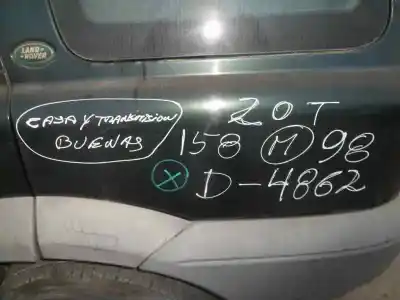 LAND-
ROVER
CAJA Y TRANSMISION
BUENAS
20T
158 M 98
X D-4862